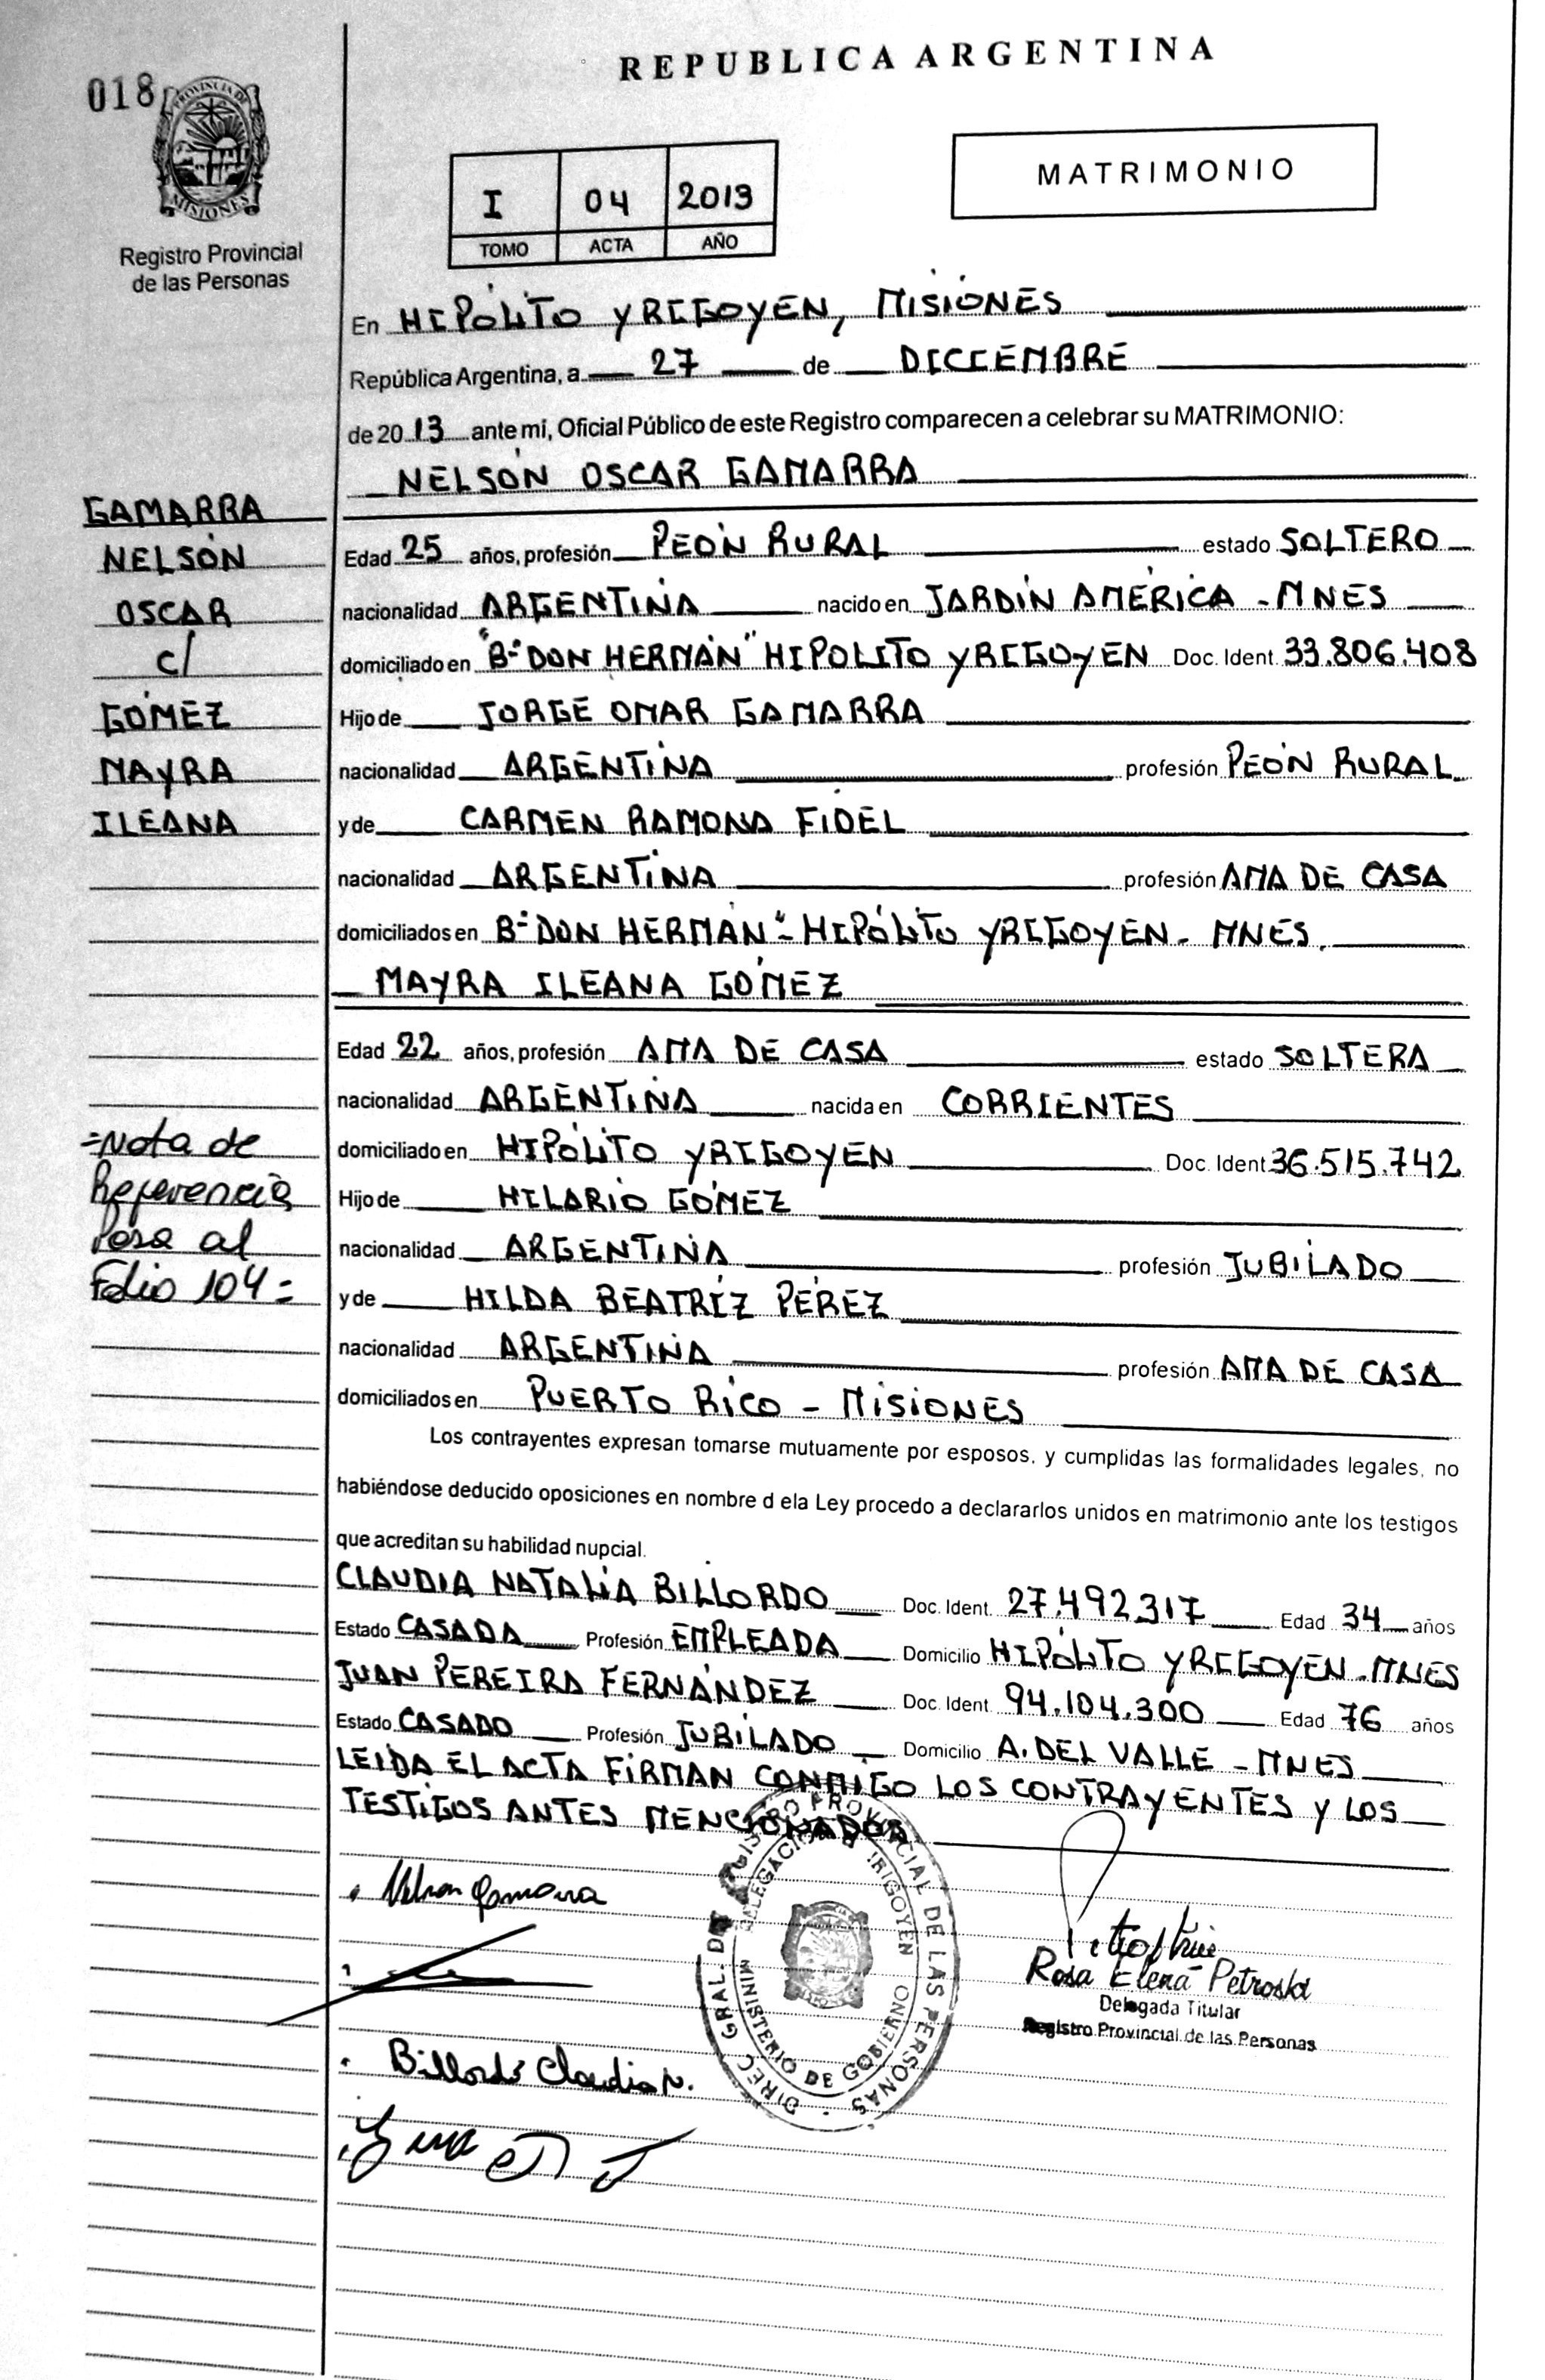 REPUBLICA ARGENTINA
018
PROVINCIA DE
MISIONES
Registro Provincial
de las Personas
I 04 2013
TOMO ACTA AÑO
MATRIMONIO
En HIPÓLITO YRIGOYEN, MISIONES
República Argentina, a 27 de DICIEMBRE
de 2013 ante mi, Oficial Público de este Registro comparecen a celebrar su MATRIMONIO:
NELSON OSCAR GAMARRA
GAMARRA
NELSON
OSCAR
c/
GÓMEZ
MAYRA
ILEANA
Edad 25 años, profesión PEÓN RURAL estado SOLTERO
nacionalidad ARGENTINA nacido en JARDÍN AMÉRICA - MNES
domiciliado en "Bº DON HERMAN" HIPOLITO YRIGOYEN Doc. Ident 33.806.408
Hijo de JORGE OMAR GAMARRA
nacionalidad ARGENTINA profesión PEÓN RURAL
y de CARMEN RAMONA FIDEL
nacionalidad ARGENTINA profesión AMA DE CASA
domiciliados en Bº DON HERMAN" - HIPÓLITO YRIGOYEN - MNES.
MAYRA ILEANA GÓMEZ
Edad 22 años, profesión AMA DE CASA estado SOLTERA
nacionalidad ARGENTINA nacida en CORRIENTES
domiciliado en HIPÓLITO YRIGOYEN Doc. Ident 36.515.742
Hijo de HILARIO GÓMEZ
nacionalidad ARGENTINA profesión JUBILADO
y de HILDA BEATRÍZ PÉREZ
nacionalidad ARGENTINA profesión AMA DE CASA
domiciliados en PUERTO RICO - MISIONES
=Nota de
Referencia
Pasa al
Folio 104=
Los contrayentes expresan tomarse mutuamente por esposos, y cumplidas las formalidades legales, no
habiéndose deducido oposiciones en nombre d ela Ley procedo a declararlos unidos en matrimonio ante los testigos
que acreditan su habilidad nupcial.
CLAUDIA NATALIA BILLORDO Doc. Ident. 27.492.317 Edad 34 años
Estado CASADA Profesión EMPLEADA Domicilio HIPÓLITO YRIGOYEN - MNES
JUAN PEREIRA FERNÁNDEZ Doc. Ident. 94.104.300 Edad 76 años
Estado CASADO Profesión JUBILADO Domicilio A. DEL VALLE - MNES
LEIDA EL ACTA FIRMAN CONMIGO LOS CONTRAYENTES Y LOS
TESTIGOS ANTES MENCIONADOS
Nelson Gamarra
Billordo Claudia N.
DIREC GRAL. DEL REGISTRO PROVINCIAL DE LAS PERSONAS
DELEGACION IRIGOYEN
MINISTERIO DE GOBIERNO
Rosa Elena Petroski
Delegada Titular
Registro Provincial de las Personas